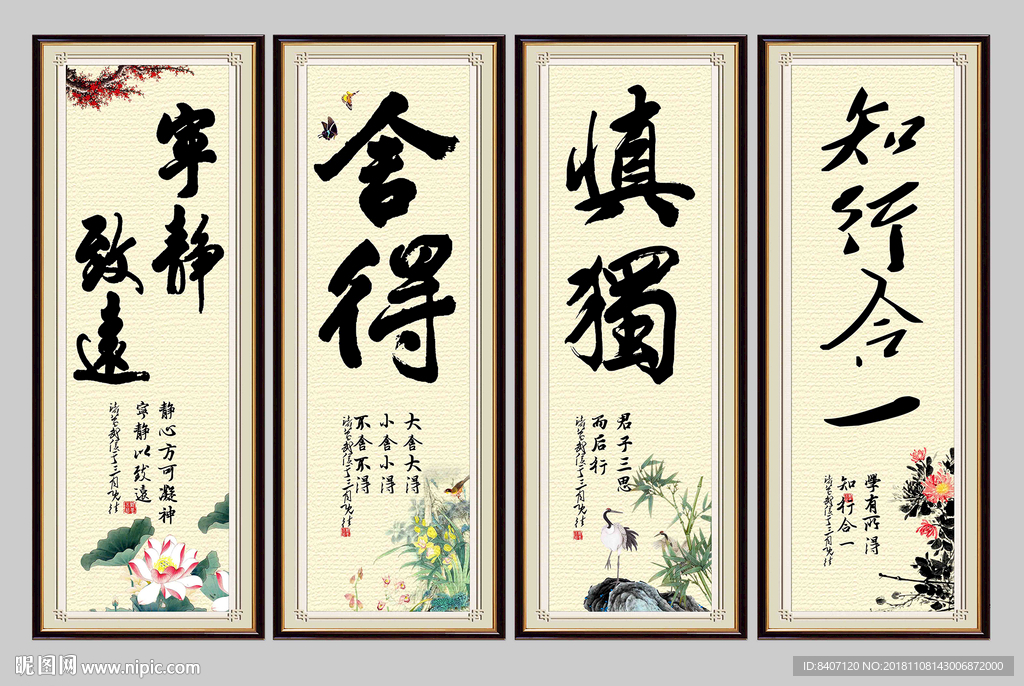 寧靜
致遠
静心方可凝神
宁静以致远
舍得
大舍大得
小舍小得
不舍不得
慎獨
君子三思
而后行
知行合一
學有所得
知行合一
昵图网 www.nipic.com
ID:8407120 NO:20181108143006872000